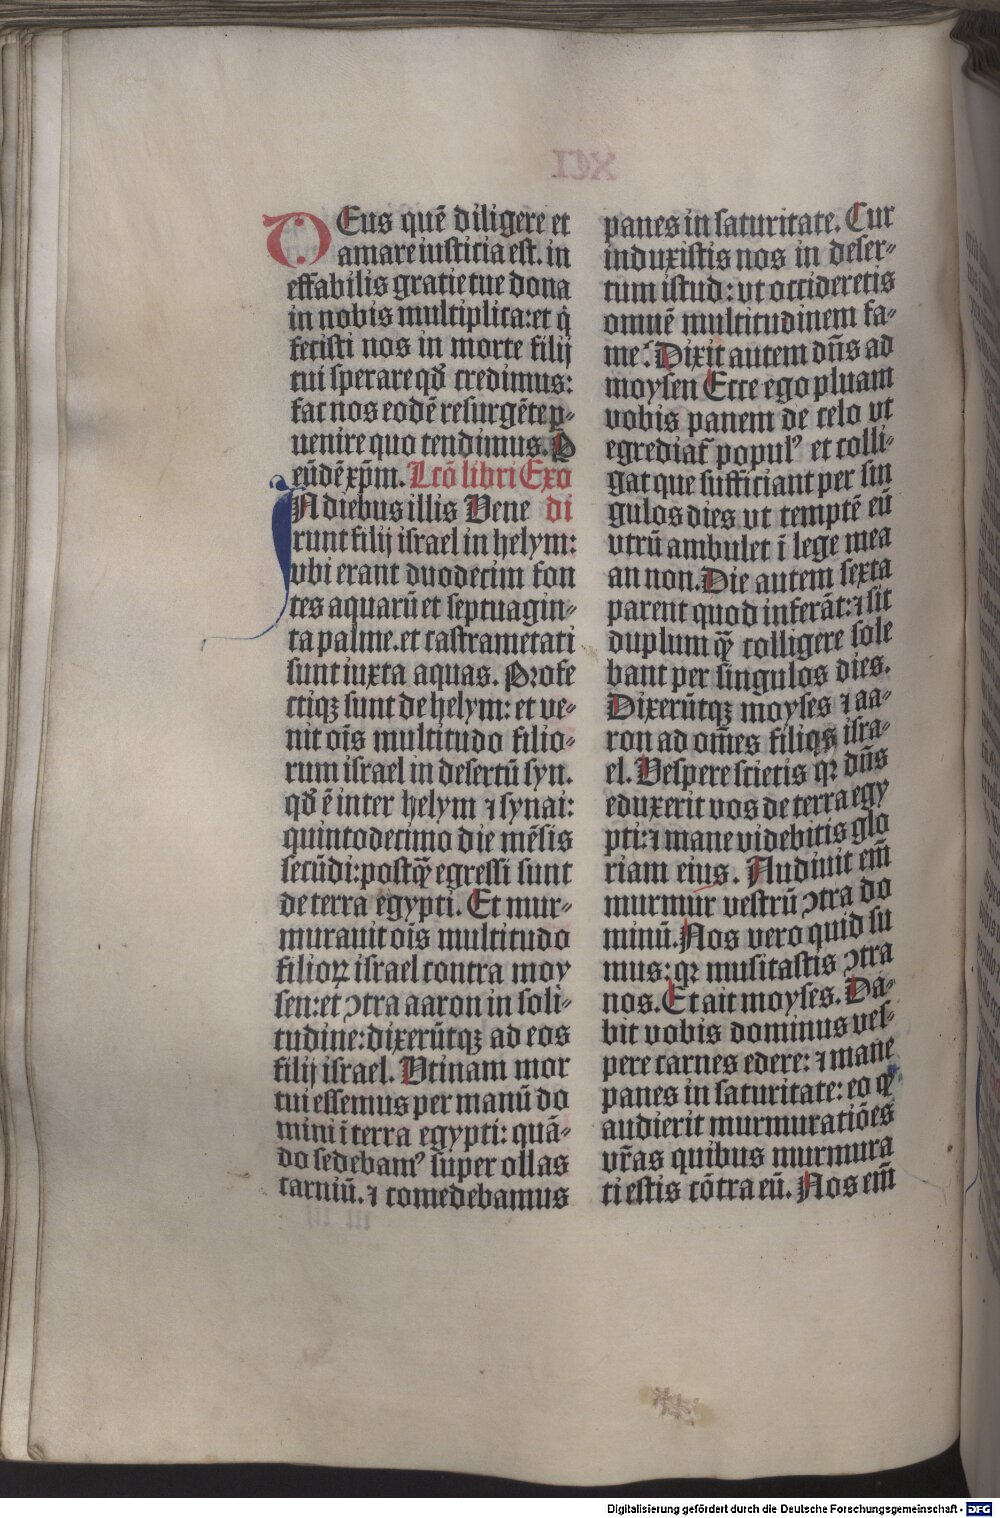 DEus quē diligere et
amare iusticia est. in
effabilis gratie tue dona
in nobis multiplica: et q̇
fecisti nos in morte filij
tui sperare qđ credimus:
fac nos eodē resurgēte ꝑ-
uenire quo tendimus. P̄
eūdē xp̄m. Lcō libri Exo
di
IN diebus illis Vene
runt filij israel in helym:
vbi erant duodecim fon
tes aquarū et septuagin-
ta palme. et castrametati
sunt iuxta aquas. Profe
ctiqꝫ sunt de helym: et ve-
nit oīs multitudo filio-
rum israel in desertū syn.
qđ ē inter helym ⁊ synai:
quintodecimo die mēsis
secūdi: postq̄ egressi sunt
de terra egypti. Et mur-
murauit oīs multitudo
filioꝝ israel contra moy
sen: et ꝯtra aaron in soli-
tudine: dixerūtqꝫ ad eos
filij israel. Vtinam mor
tui essemus per manū do
mini ī terra egypti: quā-
do sedebamꝰ super ollas
carniū. ⁊ comedebamus
panes in saturitate. Cur
induxistis nos in deser-
tum istud: vt occideretis
omnē multitudinem fa-
me? Dixit autem dn̄s ad
moysen Ecce ego pluam
vobis panem de celo vt
egrediat̄ populꝰ et colli-
gat que sufficiant per sin
gulos dies vt temptē eū
vtrū ambulet ī lege mea
an non. Die autem sexta
parent quod inferāt: ⁊ sit
duplum q̄ colligere sole
bant per singulos dies.
Dixerūtqꝫ moyses ⁊ aa-
ron ad om̄es filios isra-
el. Vespere scietis qꝛ dn̄s
eduxerit vos de terra egy
pti: ⁊ mane videbitis glo
riam eius. Audiuit em̄
murmur vestrū ꝯtra do
minū. Nos vero quid su
mus: qꝛ musitastis ꝯtra
nos. Et ait moyses. Da-
bit vobis dominus ves-
pere carnes edere: ⁊ mane
panes in saturitate: eo qđ
audierit murmuratiōes
vr̄as quibus murmura
ti estis cōtra eū. Nos em̄
Digitalisierung gefördert durch die Deutsche Forschungsgemeinschaft - DFG